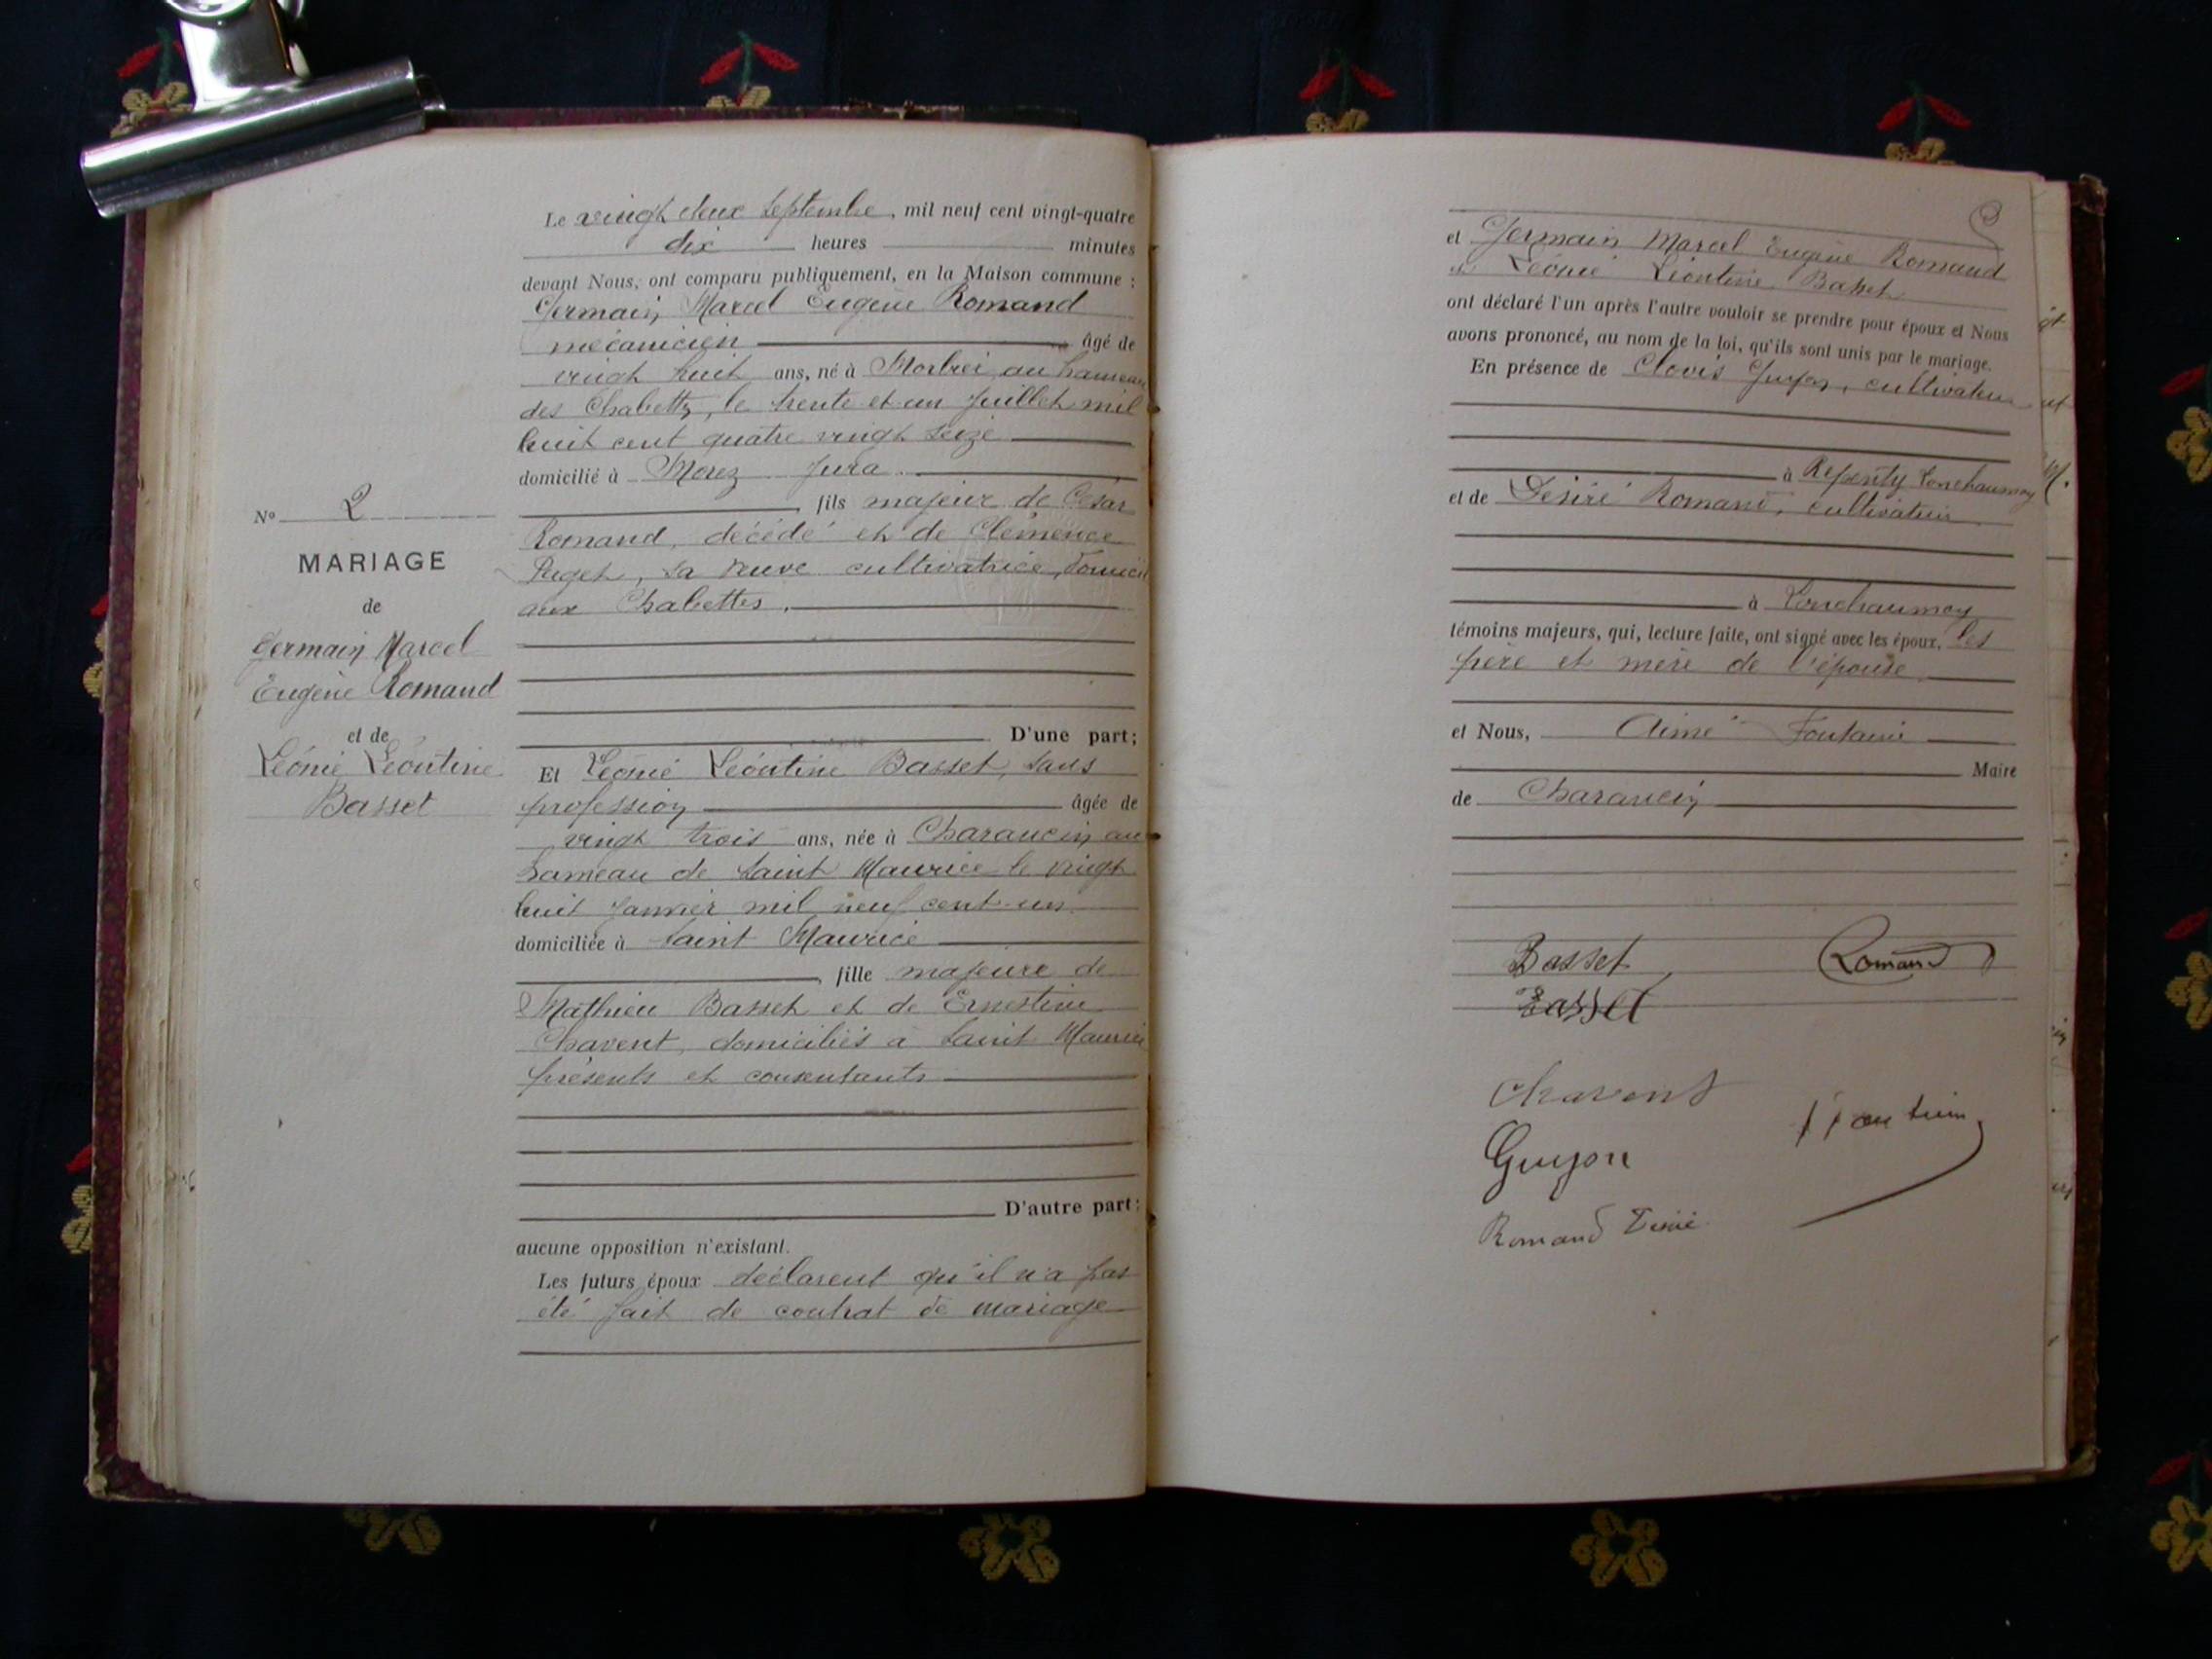 Le vingt deux septembre, mil neuf cent vingt-quatre
dix heures minutes
devant Nous, ont comparu publiquement, en la Maison commune :
Germain Marcel Eugène Romand
mécanicien âgé de
vingt huit ans, né à Morbier, au hameau
des Chabettes, le trente et un Juillet mil
huit cent quatre vingt seize
domicilié à Morez Jura
fils majeur de César
Romand, décédé et de Clémence
Paget, sa veuve cultivatrice, domicil
aux Chabettes.
D'une part;
Nº 2
MARIAGE
de
Germain Marcel
Eugène Romand
et de
Léonie Léontine
Basset
Et Léonie Léontine Basset, sans
profession âgée de
vingt trois ans, née à Charancin, au
hameau de Saint Maurice le vingt
huit Janvier mil neuf cent un
domiciliée à Saint Maurice
fille majeure de
Mathieu Basset et de Ernestine
Chavent, domiciliés à Saint Maurice
présents et consentants
D'autre part;
aucune opposition n'existant.
Les futurs époux déclarent qu'il n'a pas
été fait de contrat de mariage
et Germain Marcel Eugène Romand
et Léonie Léontine Basset
ont déclaré l'un après l'autre vouloir se prendre pour époux et Nous
avons prononcé, au nom de la loi, qu'ils sont unis par le mariage.
En présence de Clovis Guyon, cultivateur
à Repenty Lonchaumoy
et de Désiré Romand, cultivateur
à Lonchaumoy
témoins majeurs, qui, lecture faite, ont signé avec les époux, les
père et mère de l'épouse
et Nous, Aimé Fontaine
Maire
de Charancin
Basset Romand
Basset
Chavent
Guyon
Romand Désiré